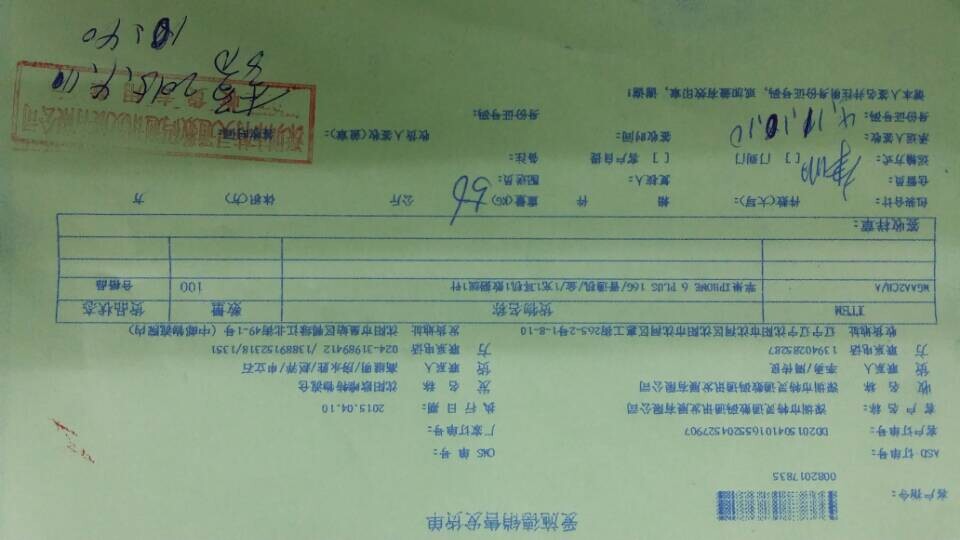 爱施德销售发货单
客户指令：
0082017835
ASD 订单号： OMS 单 号：
客户订单号： DD201504101655204527907 厂家订单号：
客 户 名 称： 深圳市特灵通数码通讯发展有限公司 执 行 日 期： 2015.04.10
收 名 称 深圳市特灵通数码通讯发展有限公司 发 名 称
货 联系人 货 联系人
方 联系电话 13940285287 方 联系电话 024-31989412 /13889152318/1351
收货地址 辽宁辽宁沈阳市沈河区沈阳市沈河区惠工街265-2号1-8-10 发货地址 沈阳市皇姑区鸭绿江北街49-1号（中邮物流院内）
ITEM 货物名称 数量 货品状态
MGAA2CH/A 苹果 IPHONE 6 PLUS 16G/普通机/金/1充/1耳机1数据线1针 100 合格品
签收样章：
包装合计： 件数(大写)： 箱 件 重量(KG) 公斤 体积(方) 方
仓管员 复核人： 配送员
运输方式： [ ] 门到门 [ ] 客户自提 备注：
承运人签收： 签收时间： 收货人签收(盖章)：
身份证号码： 身份证号码：
请本人签名并注明身份证号码，或加盖有效印章，谢谢！
2015.4.10
10:40